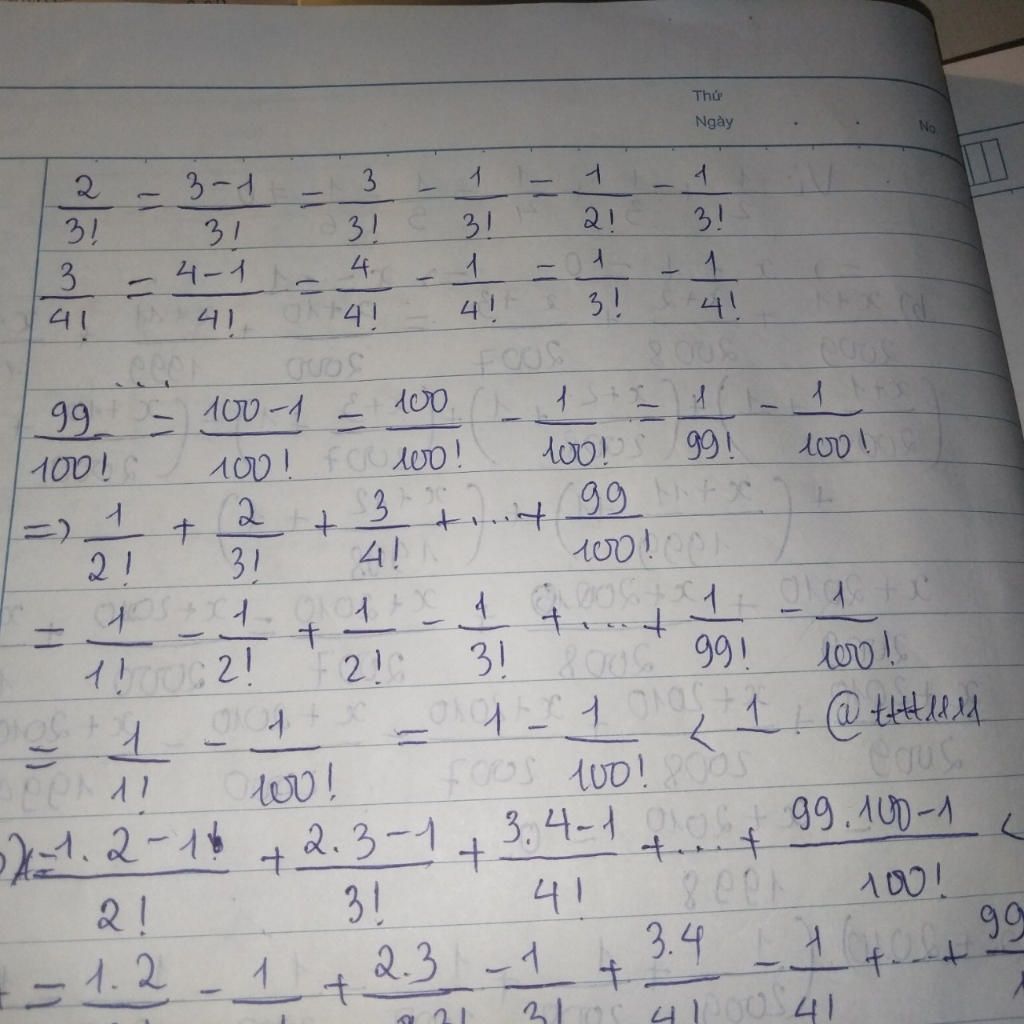 Thứ
Ngày No
2/3! = 3-1/3! = 3/3! - 1/3! = 1/2! - 1/3!
3/4! = 4-1/4! = 4/4! - 1/4! = 1/3! - 1/4!
...
99/100! = 100-1/100! = 100/100! - 1/100! = 1/99! - 1/100!
=> 1/2! + 2/3! + 3/4! + ... + 99/100!
= 1/1! - 1/2! + 1/2! - 1/3! + ... + 1/99! - 1/100!
= 1/1! - 1/100! = 1 - 1/100! < 1
1.2-1/2! + 2.3-1/3! + 3.4-1/4! + ... + 99.100-1/100! <
= 1.2 - 1 + 2.3/3! - 1/3! + 3.4/4! - 1/4! + ... + 99